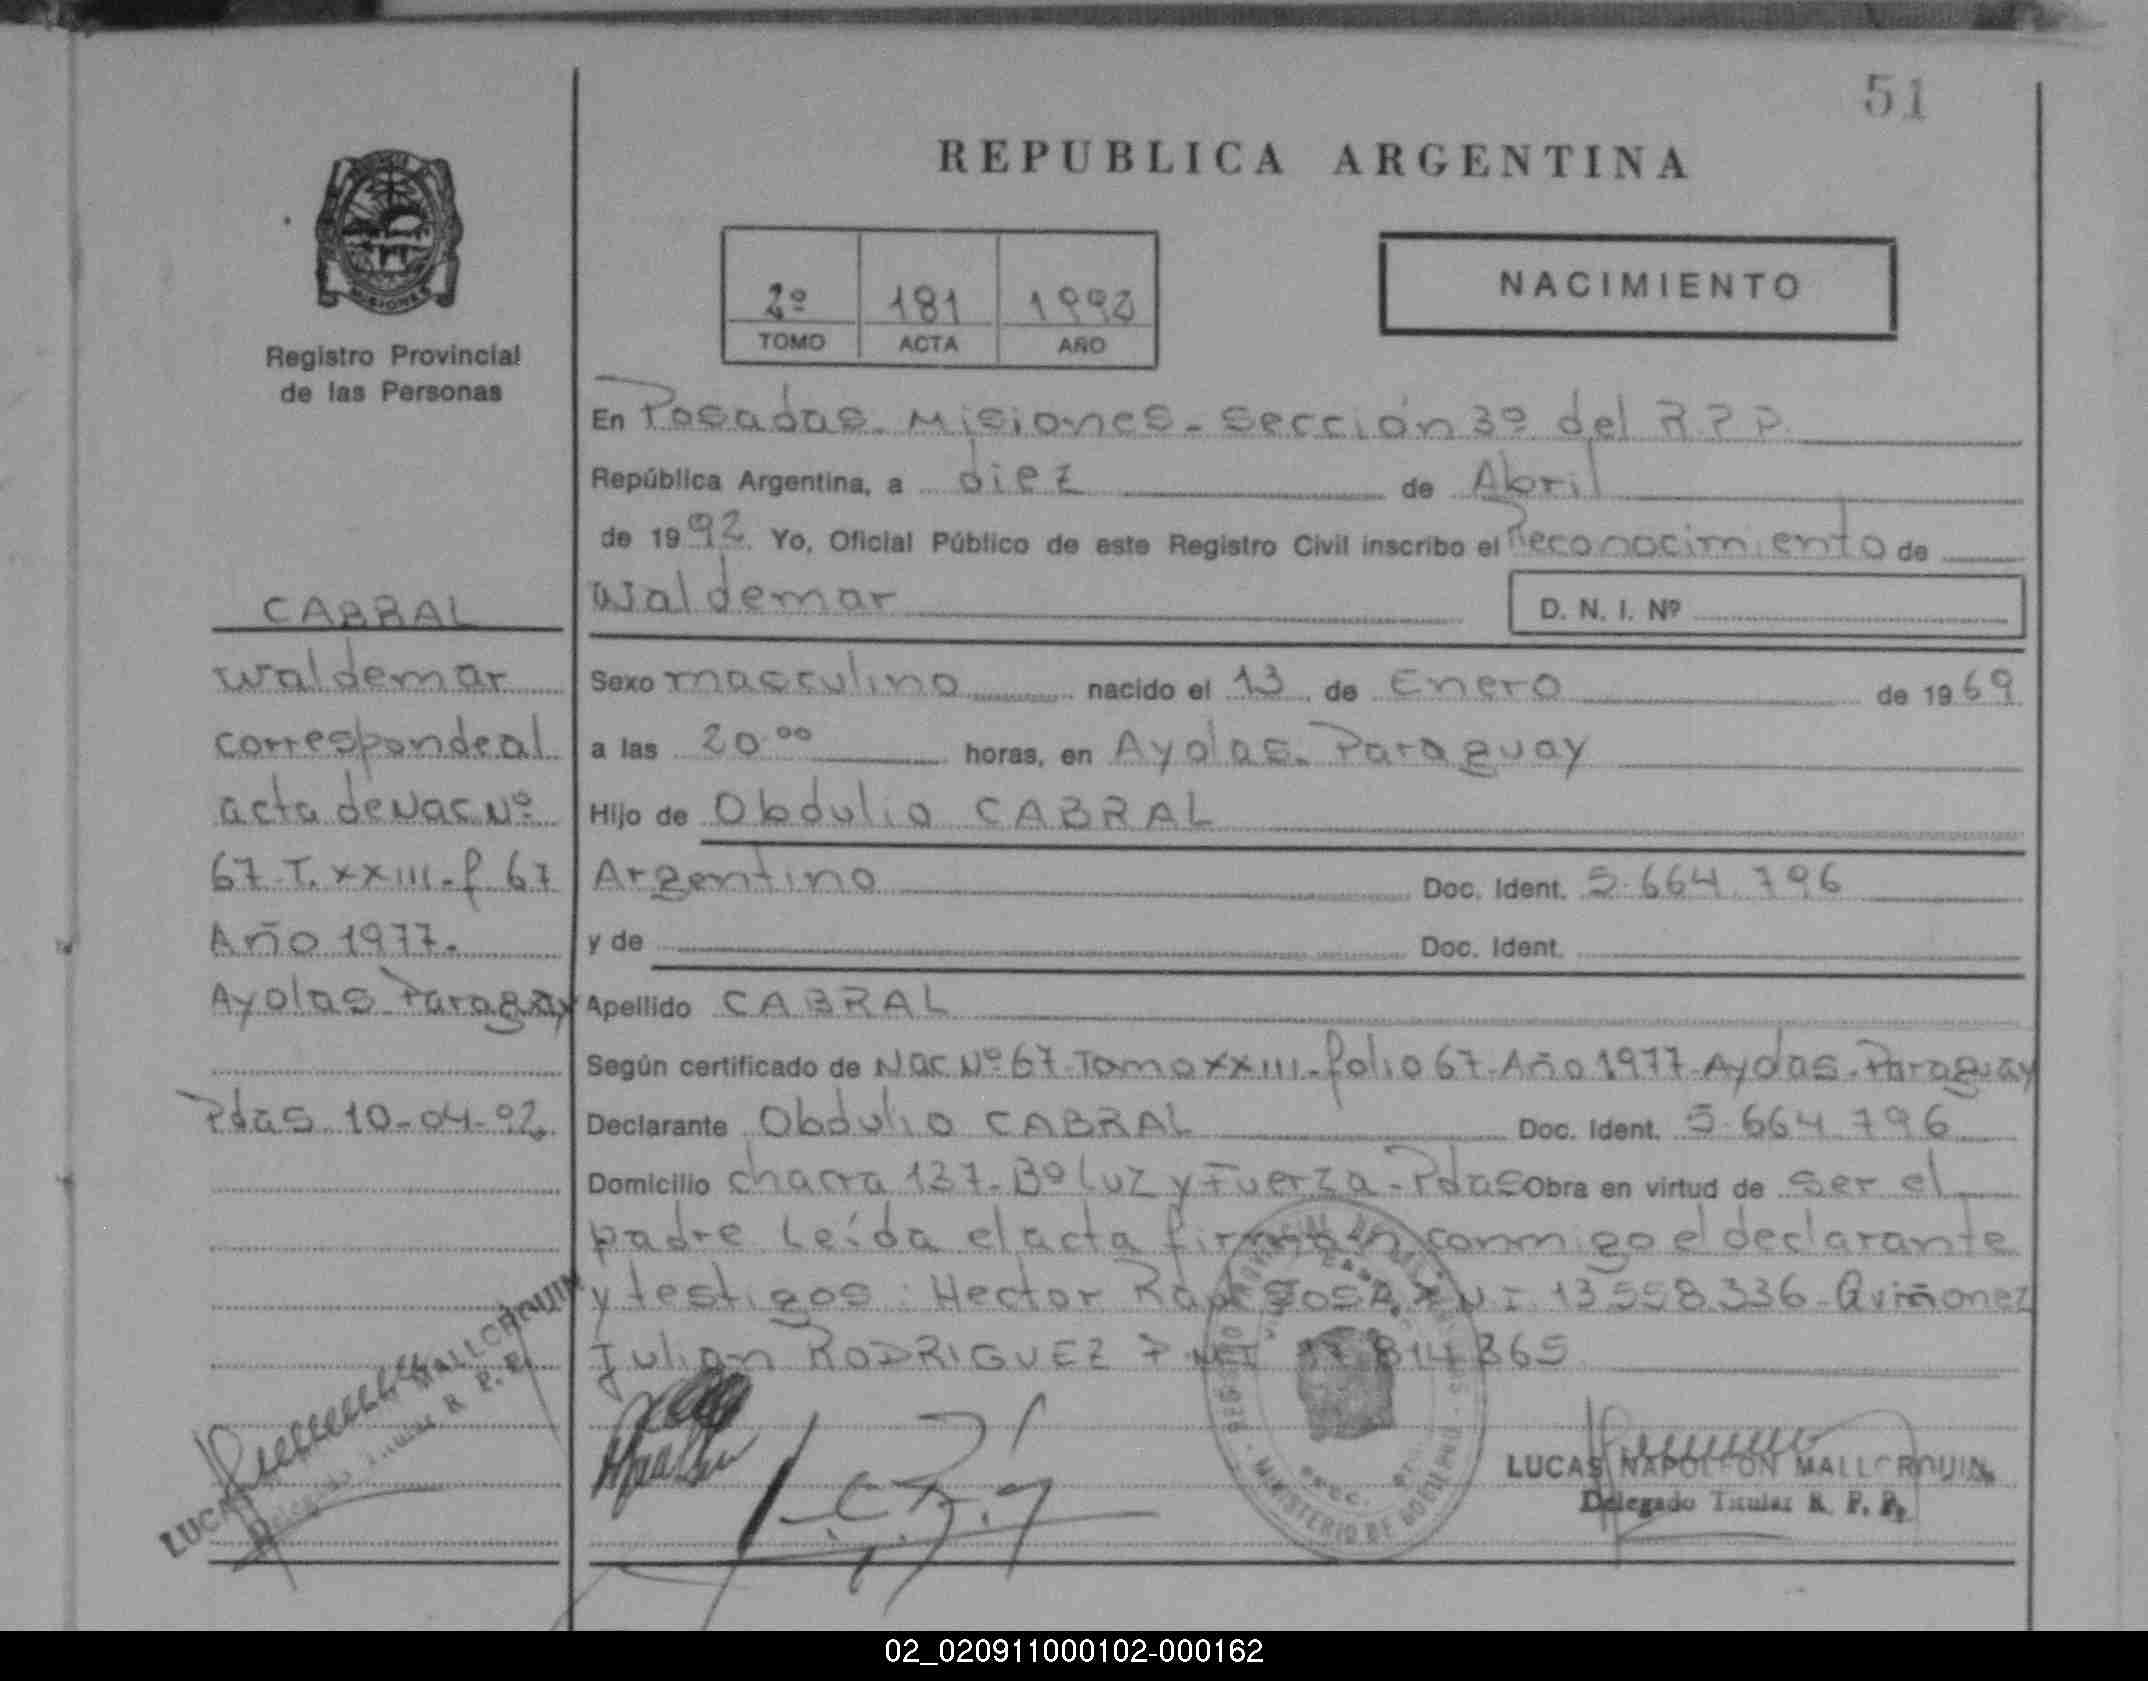 51
REPUBLICA ARGENTINA
NACIMIENTO
2º 181 1992
TOMO ACTA AÑO
MISIONES
Registro Provincial
de las Personas
En Posadas. Misiones. Sección 3º del R.P.P.
República Argentina, a diez de Abril
de 1992. Yo, Oficial Público de este Registro Civil inscribo el Reconocimiento de
Waldemar
D. N. I. Nº
Sexo masculino nacido el 13 de Enero de 1969
a las 20.00 horas, en Ayolas. Paraguay
Hijo de Obdulio CABRAL
Argentino Doc. Ident. 5.664.796
y de Doc. Ident.
Apellido CABRAL
Según certificado de Nac. Nº 67-Tomo XXIII-folio 67-Año 1977-Ayolas-Paraguay
Declarante Obdulio CABRAL Doc. Ident. 5.664.796
Domicilio chacra 137-Bº Luz y Fuerza-Pdas Obra en virtud de ser el
padre Leída el acta firman conmigo el declarante
y testigos: Hector 13.558.336-Quiñonez
Julian RODRIGUEZ 814365
LUCAS NAPOLEON MALLORQUIN
Delegado Titular R. P. P.
CABRAL
Waldemar
corresponde al
acta de Nac. Nº
67-T. XXIII-f 67
Año 1977.
Ayolas-Paraguay
Pdas 10-04-92
LUCAS MALLORQUIN
Delegado Titular R. P. P.
02_020911000102-000162